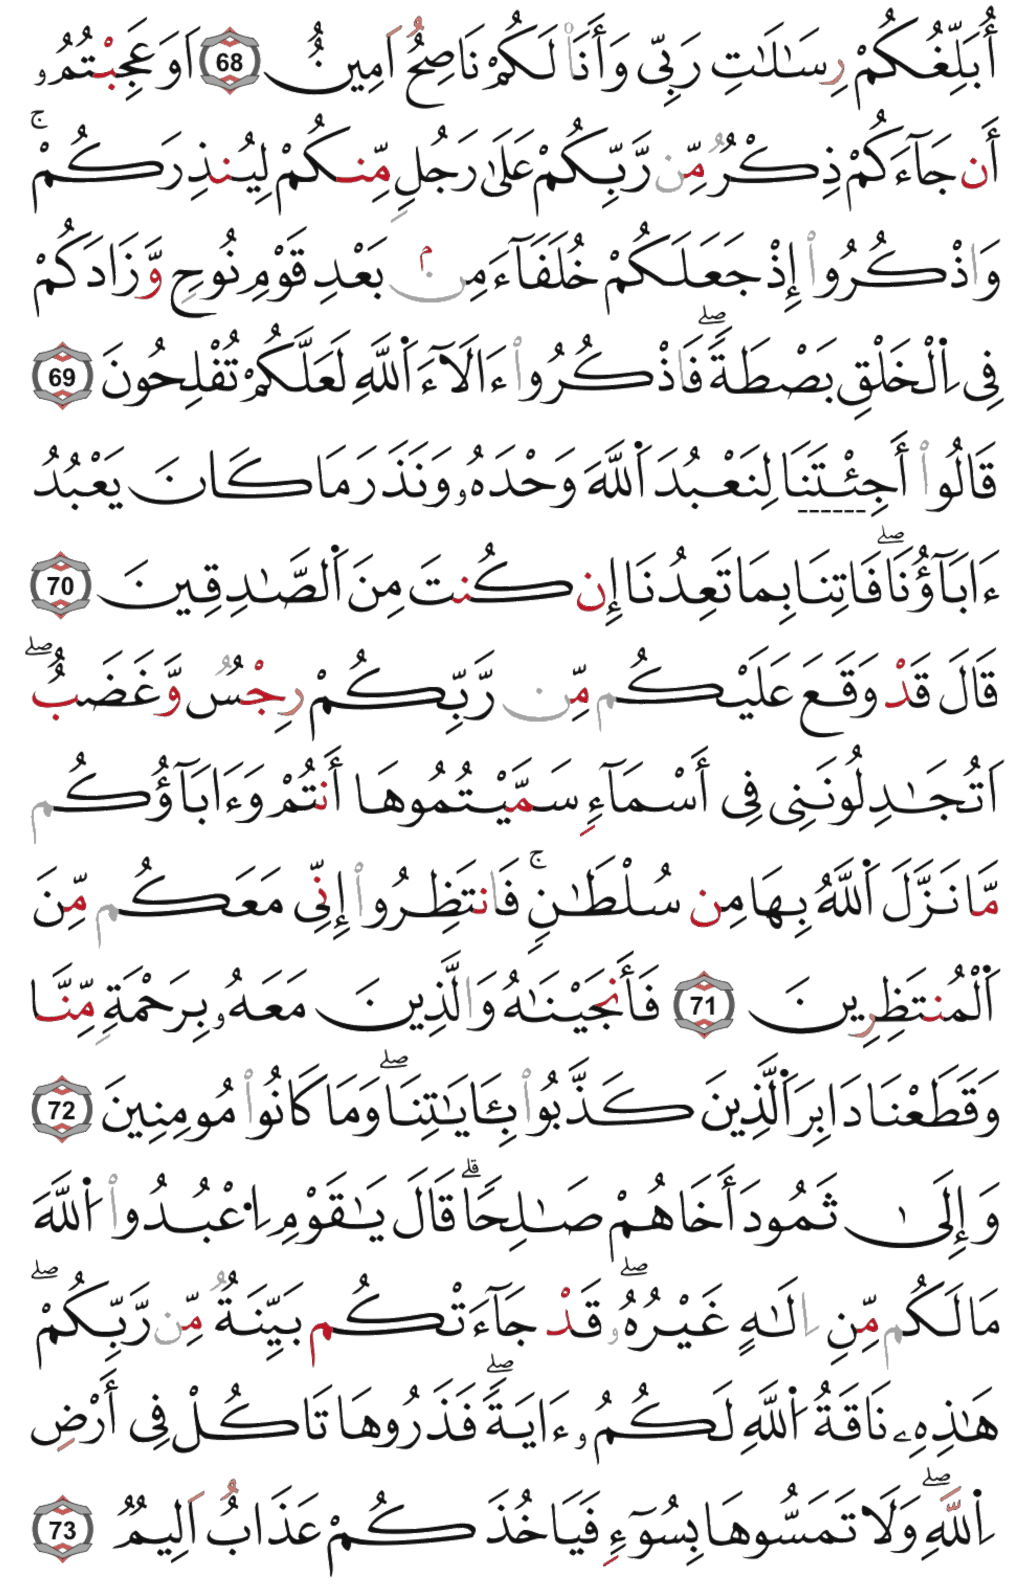 أُبَلِّغُكُمْ رِسَٰلَٰتِ رَبِّي وَأَنَا۠ لَكُمْ نَاصِحٌ اَمِينٌ 68 اَوَعَجِبْتُمُۥ
أَن جَآءَكُمْ ذِكْرٌ مِّن رَّبِّكُمْ عَلَىٰ رَجُلٍ مِّنكُمْ لِيُنذِرَكُمْ ۚ
وَاذْكُرُوا۟ إِذْ جَعَلَكُمْ خُلَفَآءَ مِنۢ بَعْدِ قَوْمِ نُوحٍ وَّزَادَكُمْ
فِى اِ۬لْخَلْقِ بَصْطَةً ۖ فَاذْكُرُوا۟ ءَالَآءَ اَ۬للَّهِ لَعَلَّكُمْ تُفْلِحُونَ 69
قَالُوا۟ أَجِئْتَنَا لِنَعْبُدَ اَ۬للَّهَ وَحْدَهُۥ وَنَذَرَ مَا كَانَ يَعْبُدُ
ءَابَآؤُنَا ۖ فَاتِنَا بِمَا تَعِدُنَا إِن كُنتَ مِنَ اَ۬لصَّٰدِقِينَ 70
قَالَ قَدْ وَقَعَ عَلَيْكُم مِّن رَّبِّكُمْ رِجْسٌ وَّغَضَبٌ ۖ
اَتُجَٰدِلُونَنِى فِى أَسْمَآءٍ سَمَّيْتُمُوهَا أَنتُمْ وَءَابَآؤُكُم
مَّا نَزَّلَ اَ۬للَّهُ بِهَا مِن سُلْطَٰنٍ ۚ فَانتَظِرُوا۟ إِنِّى مَعَكُم مِّنَ
اَ۬لْمُنتَظِرِينَ 71 فَأَنجَيْنَٰهُ وَالَّذِينَ مَعَهُۥ بِرَحْمَةٍ مِّنَّا
وَقَطَعْنَا دَابِرَ اَ۬لَّذِينَ كَذَّبُوا۟ بِـَٔايَٰتِنَا ۖ وَمَا كَانُوا۟ مُومِنِينَ 72
وَإِلَىٰ ثَمُودَ أَخَاهُمْ صَٰلِحًا ۗ قَالَ يَٰقَوْمِ اِ۟عْبُدُوا۟ اُ۬للَّهَ
مَا لَكُم مِّنِ اِلَٰهٍ غَيْرُهُۥ ۖ قَدْ جَآءَتْكُم بَيِّنَةٌ مِّن رَّبِّكُمْ ۖ
هَٰذِهِۦ نَاقَةُ اُ۬للَّهِ لَكُمُۥ ءَايَةً ۖ فَذَرُوهَا تَاكُلْ فِى أَرْضِ
اِ۬للَّهِ ۖ وَلَا تَمَسُّوهَا بِسُوٓءٍ فَيَاخُذَكُمْ عَذَابٌ اَلِيمٌ 73